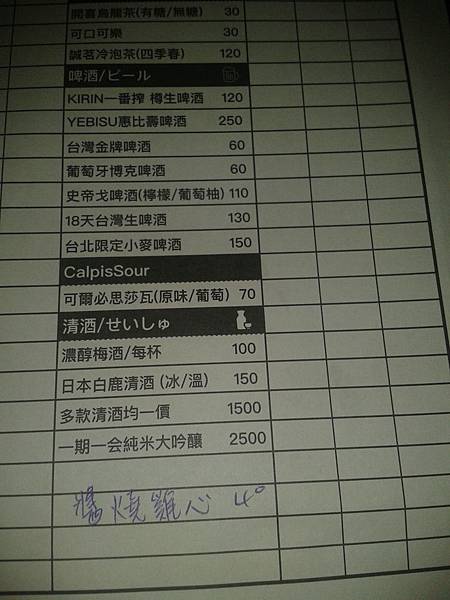 開喜烏龍茶(有糖/無糖) 30
可口可樂 30
誠茗冷泡茶(四季春) 120
啤酒/ビール
KIRIN一番搾 樽生啤酒 120
YEBISU惠比壽啤酒 250
台灣金牌啤酒 60
葡萄牙博克啤酒 60
史帝戈啤酒(檸檬/葡萄柚) 110
18天台灣生啤酒 130
台北限定小麥啤酒 150
CalpisSour
可爾必思莎瓦(原味/葡萄) 70
清酒/せいしゅ
濃醇梅酒/每杯 100
日本白鹿清酒 (冰/溫) 150
多款清酒均一價 1500
一期一会純米大吟釀 2500
醬燒雞心 40